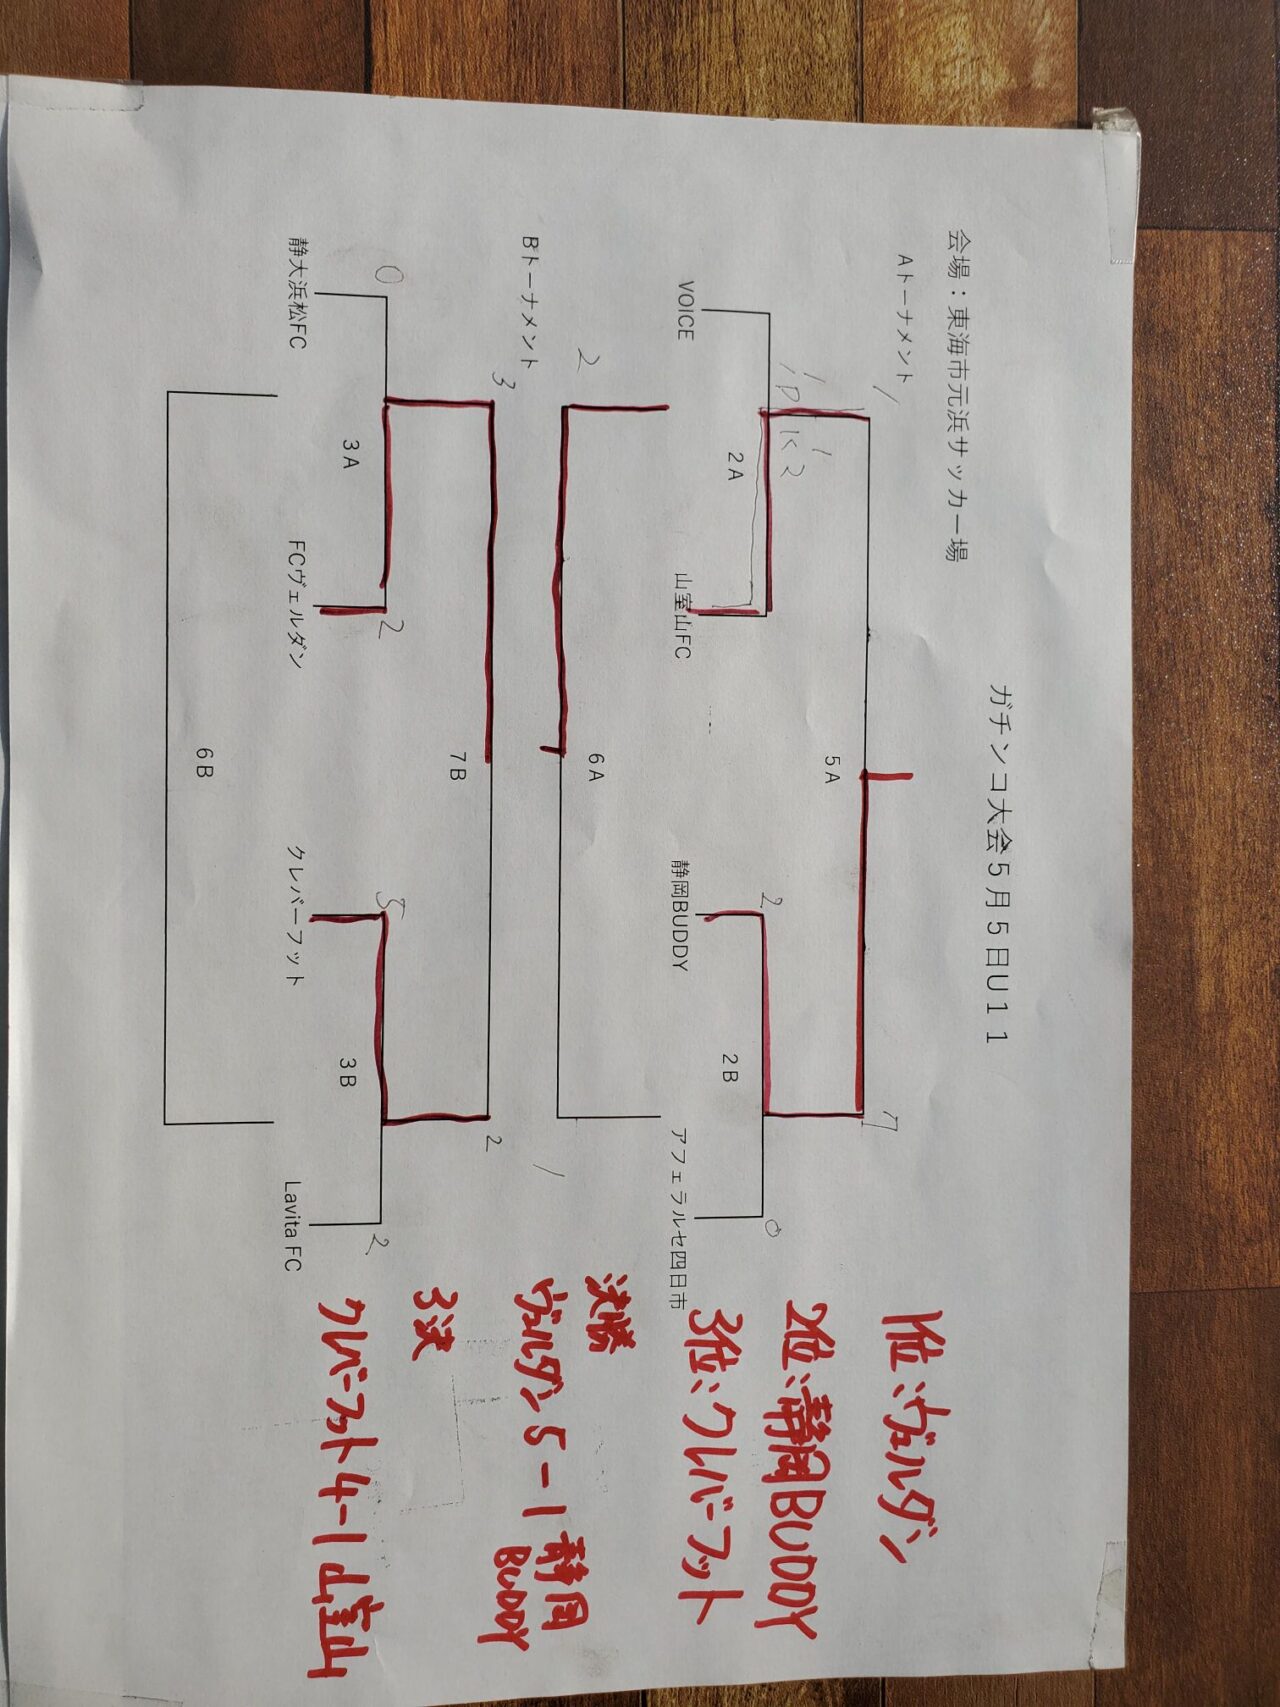 ガチンコ大会5月5日U11
会場：東海市元浜サッカー場
Aトーナメント
1
5A
7
1 1
PK 2
2A
2
2B
0
VOICE
山室山FC
静岡BUDDY
アフェラルセ四日市
2
6A
1
Bトーナメント
3
7B
2
0
3A
2
5
3B
2
静大浜松FC
FCヴェルダン
クレバーフット
Lavita FC
6B
1位：ヴェルダン
2位：静岡BUDDY
3位：クレバーフット
決勝
ヴェルダン5-1静岡BUDDY
3決
クレバーフット4-1山室山